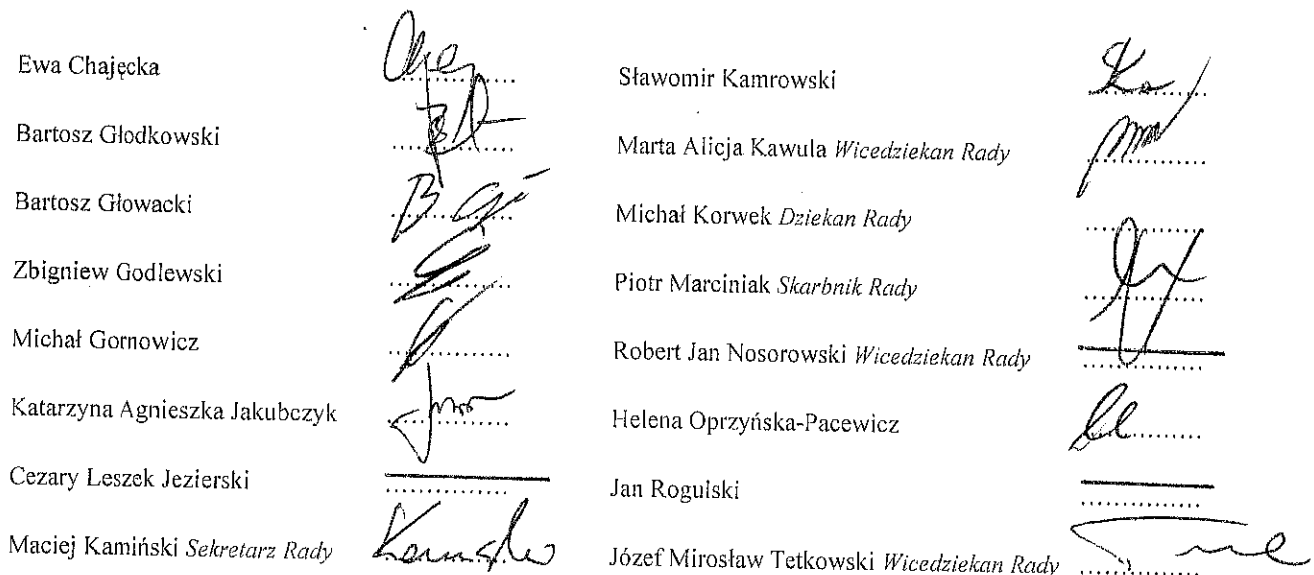 Ewa Chajęcka
Bartosz Głodkowski
Bartosz Głowacki
Zbigniew Godlewski
Michał Gornowicz
Katarzyna Agnieszka Jakubczyk
Cezary Leszek Jezierski
Maciej Kamiński Sekretarz Rady
Sławomir Kamrowski
Marta Alicja Kawula Wicedziekan Rady
Michał Korwek Dziekan Rady
Piotr Marciniak Skarbnik Rady
Robert Jan Nosorowski Wicedziekan Rady
Helena Oprzyńska-Pacewicz
Jan Rogulski
Józef Mirosław Tetkowski Wicedziekan Rady